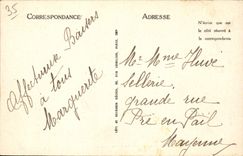 35
CORRESPONDANCE
ADRESSE
N'écrire que sur
le côté réservé à
la correspondance
Affectueux Baisers
à tous
Marguerite
Mr Mme Huve
Sellerie
grande rue
Pré en Pail
Mayenne